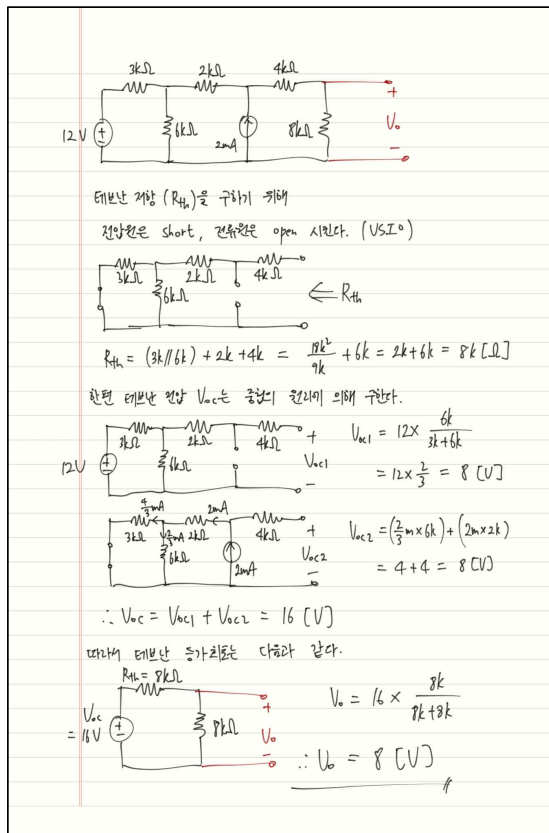 3kΩ 2kΩ 4kΩ
12V 6kΩ 2mA 8kΩ + Vo -
테브난 저항 (Rth)을 구하기 위해
전압원은 short, 전류원은 open 시킨다. (VSIO)
3kΩ 6kΩ 2kΩ 4kΩ ⇐ Rth
Rth = (3k//6k) + 2k + 4k = 18k²/9k + 6k = 2k+6k = 8k [Ω]
한편 테브난 전압 Voc는 중첩의 원리에 의해 구한다.
3kΩ 2kΩ 4kΩ + Voc1 = 12 × 6k/3k+6k
12V 6kΩ Voc1 - = 12 × 2/3 = 8 [V]
4/3mA 2mA
3kΩ 2/3mA 2kΩ 4kΩ + Voc2 = (2/3m × 6k) + (2m × 2k)
6kΩ 2mA Voc2 - = 4 + 4 = 8 [V]
∴ Voc = Voc1 + Voc2 = 16 [V]
따라서 테브난 등가회로는 다음과 같다.
Rth = 8kΩ
Voc = 16V 8kΩ + Vo - Vo = 16 × 8k/8k+8k
∴ Vo = 8 [V]